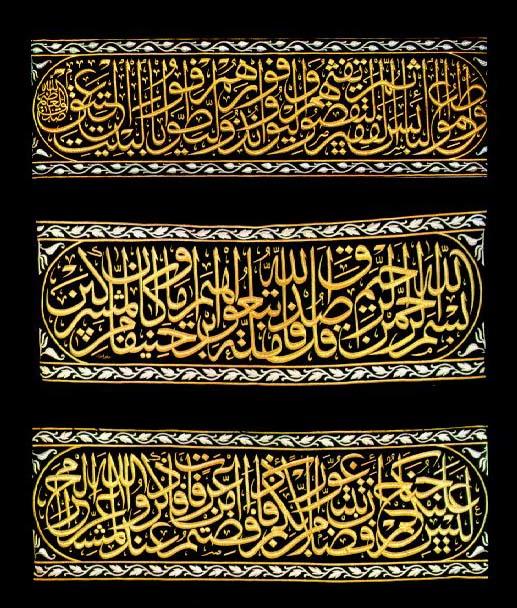 وأطعموا البائس الفقير ثم ليقضوا تفثهم وليوفوا نذورهم وليطوفوا بالبيت العتيق
بسم الله الرحمن الرحيم قل صدق الله فاتبعوا ملة إبراهيم حنيفا وما كان من المشركين
ليس عليكم جناح أن تبتغوا فضلا من ربكم فإذا أفضتم من عرفات فاذكروا الله عند المشعر الحرام